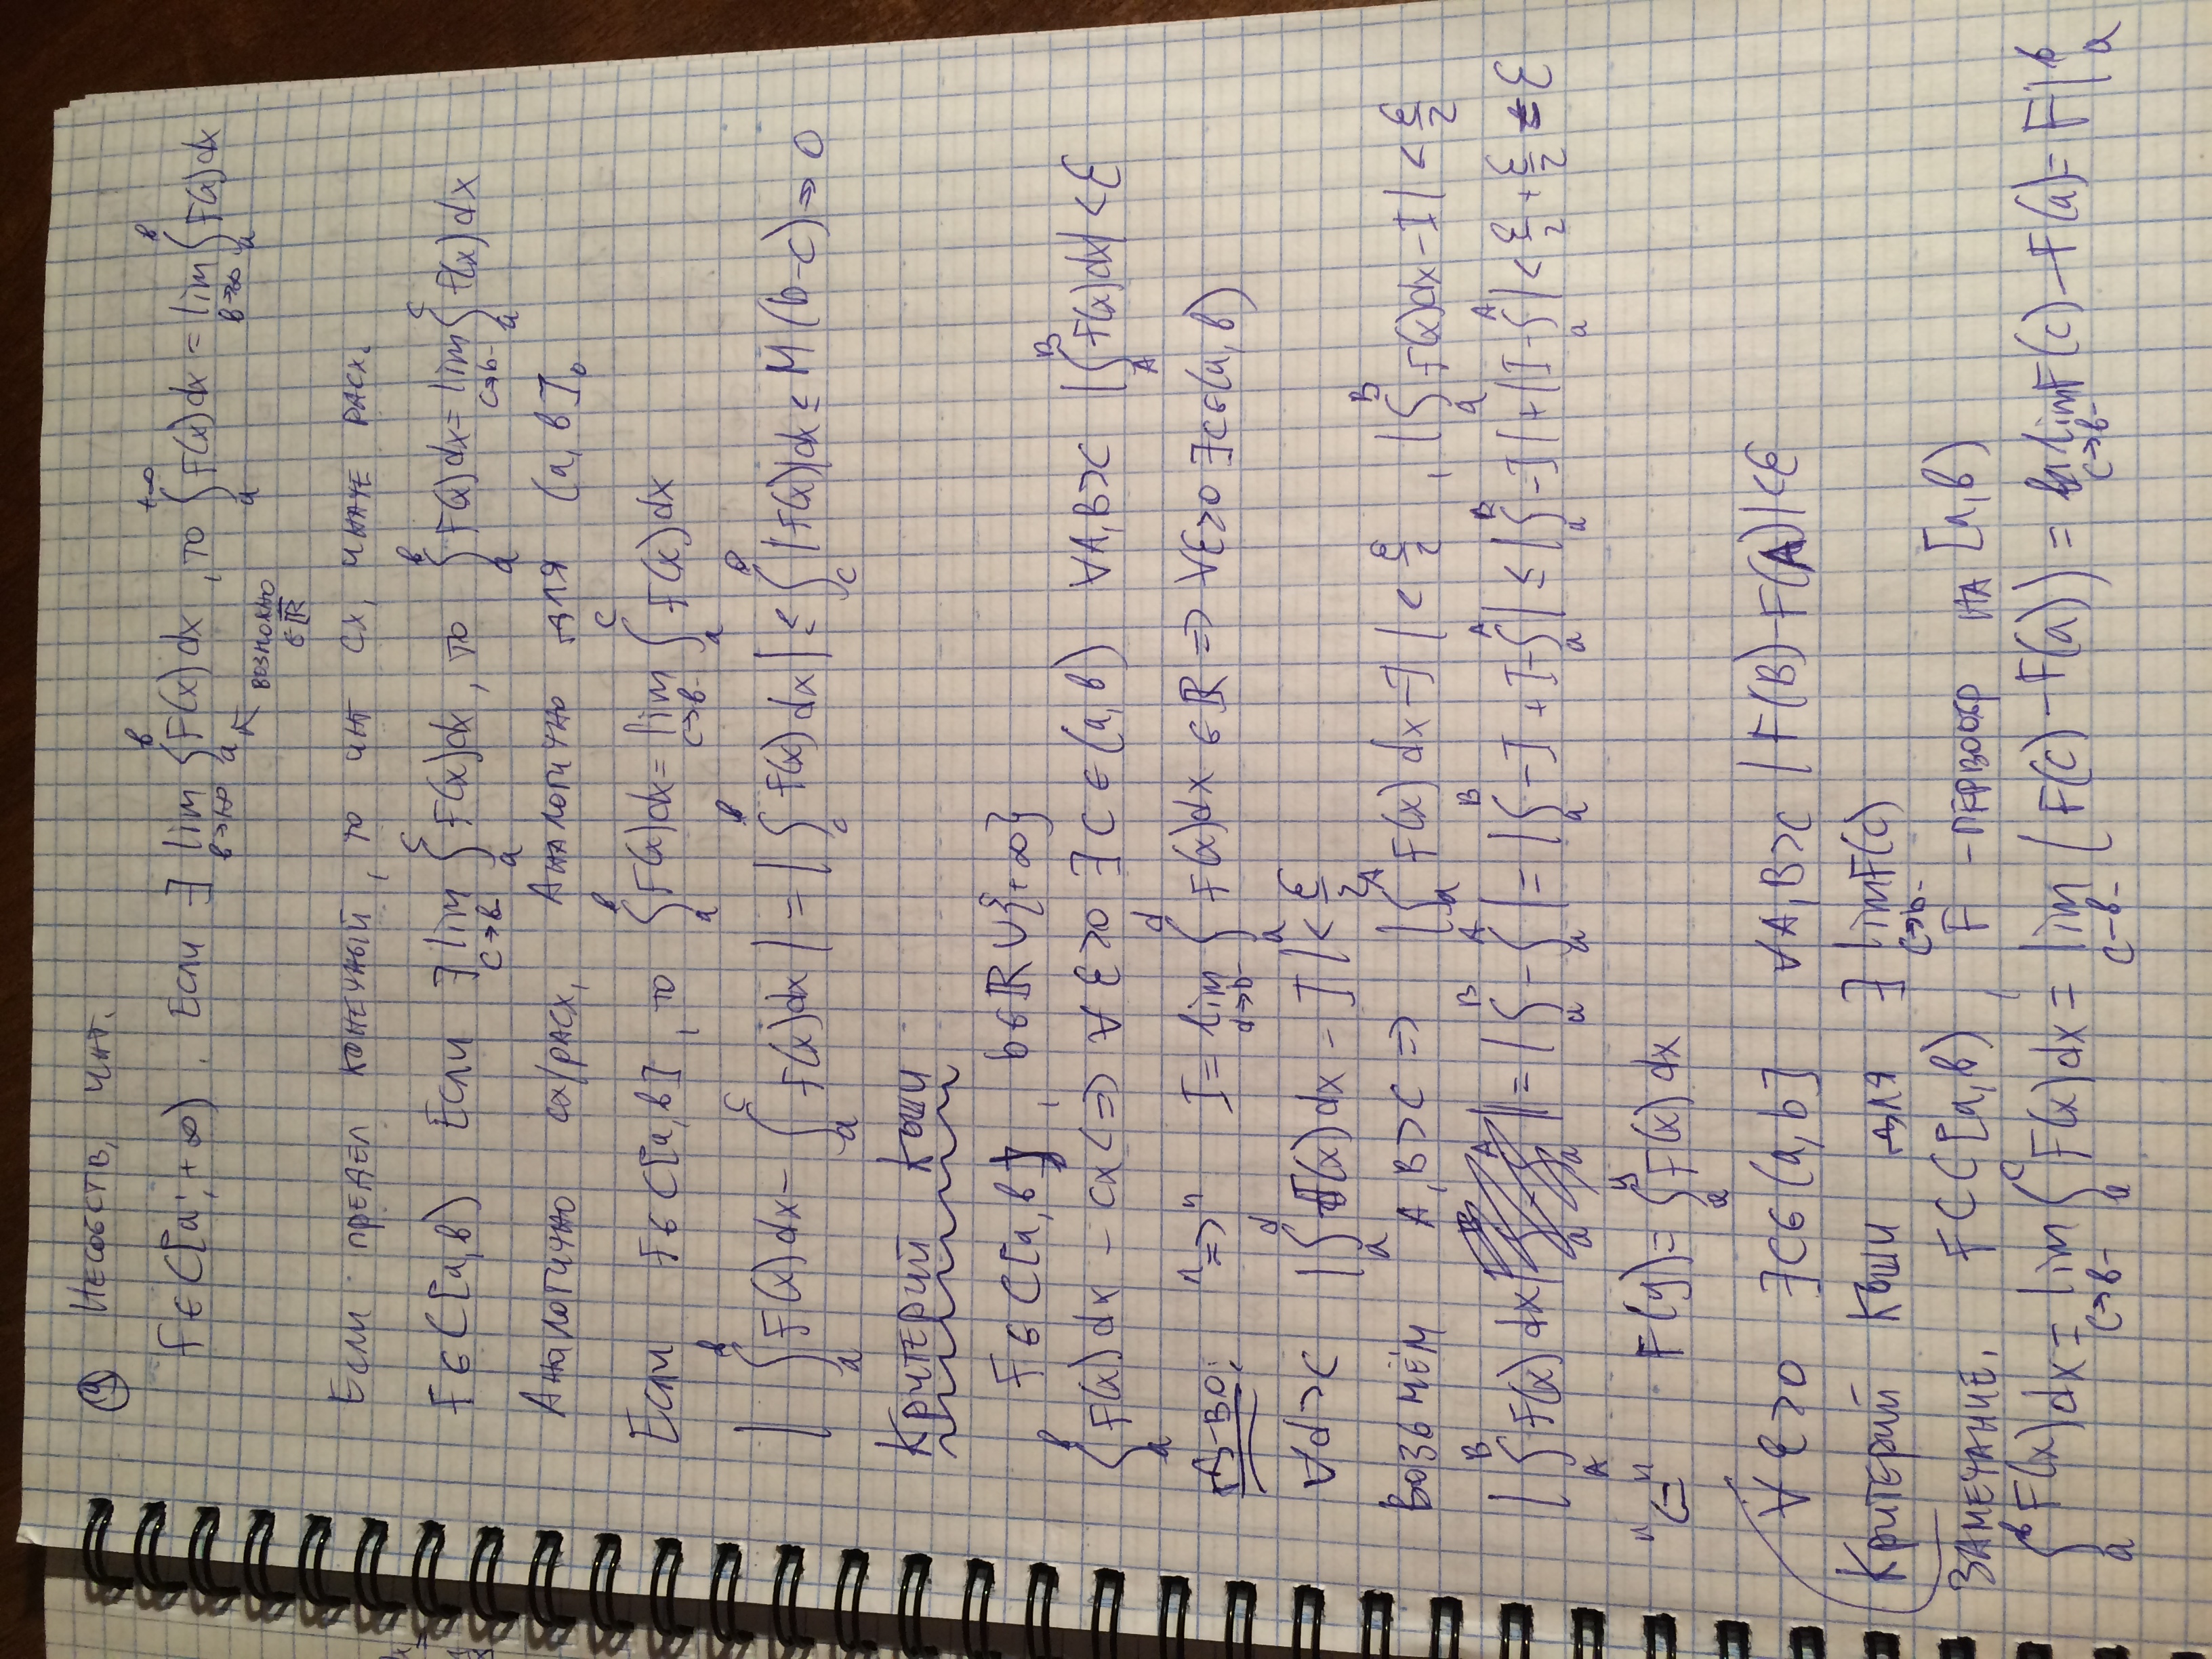 ⑨ Несобств. инт.
f ∈ C[a; +∞). Если ∃ lim_{b→+∞} ∫_a^b f(x)dx, то ∫_a^{+∞} f(x)dx = lim_{b→∞} ∫_a^b f(x)dx
↖ возможно
∈ R̄
Если предел конечный, то инт сх, иначе расх.
f ∈ C[a,b) Если ∃ lim_{c→b-} ∫_a^c f(x)dx, то ∫_a^b f(x)dx = lim_{c→b-} ∫_a^c f(x)dx
Аналогично сх/расх, Аналогично для (a,b].
Если f ∈ C[a,b], то ∫_a^b f(x)dx = lim_{c→b-} ∫_a^c f(x)dx
| ∫_a^b f(x)dx - ∫_a^c f(x)dx | = | ∫_c^b f(x)dx | ≤ ∫_c^b |f(x)|dx ≤ M(b-c) → 0
Критерий Коши
f ∈ C[a,b), b ∈ R ∪ {+∞}
∫_a^b f(x)dx - сх <=> ∀ε>0 ∃c∈(a,b) ∀A,B>c |∫_A^B f(x)dx| < ε
Д-во: "=>" I = lim_{d→b-} ∫_a^d f(x)dx ∈ R => ∀ε>0 ∃c∈(a,b)
∀d>c |∫_a^d f(x)dx - I| < ε/2
Возьмём A,B>c => |∫_a^A f(x)dx - I| < ε/2, |∫_a^B f(x)dx - I| < ε/2
|∫_A^B f(x)dx| = |∫_a^B - ∫_a^A| = |∫_a^B - I + I - ∫_a^A| ≤ |∫_a^B - I| + |I - ∫_a^A| < ε/2 + ε/2 = ε
"<=" F(y) = ∫_a^y f(x)dx
∀ε>0 ∃c∈(a,b] ∀A,B>c |F(B)-F(A)|<ε
Критерий Коши для ∃ lim_{c→b-} F(c)
Замечание. f ⊂ C[a,b), F - первообр на [a,b)
∫_a^b f(x)dx = lim_{c→b-} ∫_a^c f(x)dx = lim_{c-b-} (F(c) - F(a)) = lim_{c→b-} F(c) - F(a) = F|_a^b